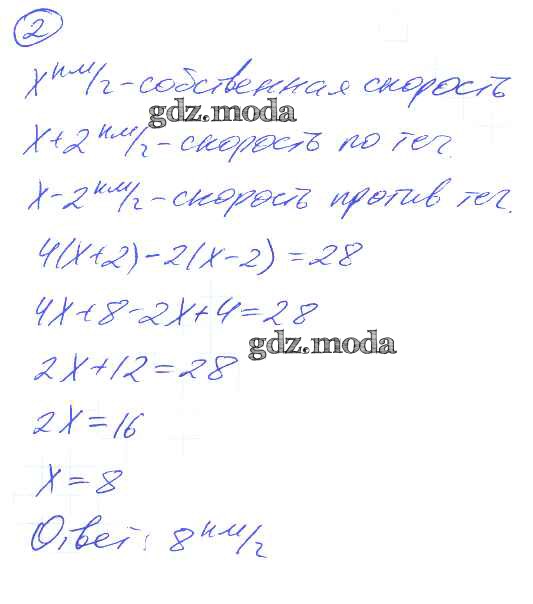 2
x км/ч - собственная скорость
gdz.moda
x+2 км/ч - скорость по теч.
x-2 км/ч - скорость против теч.
4(x+2)-2(x-2)=28
4x+8-2x+4=28
gdz.moda
2x+12=28
2x=16
x=8
Ответ: 8 км/ч